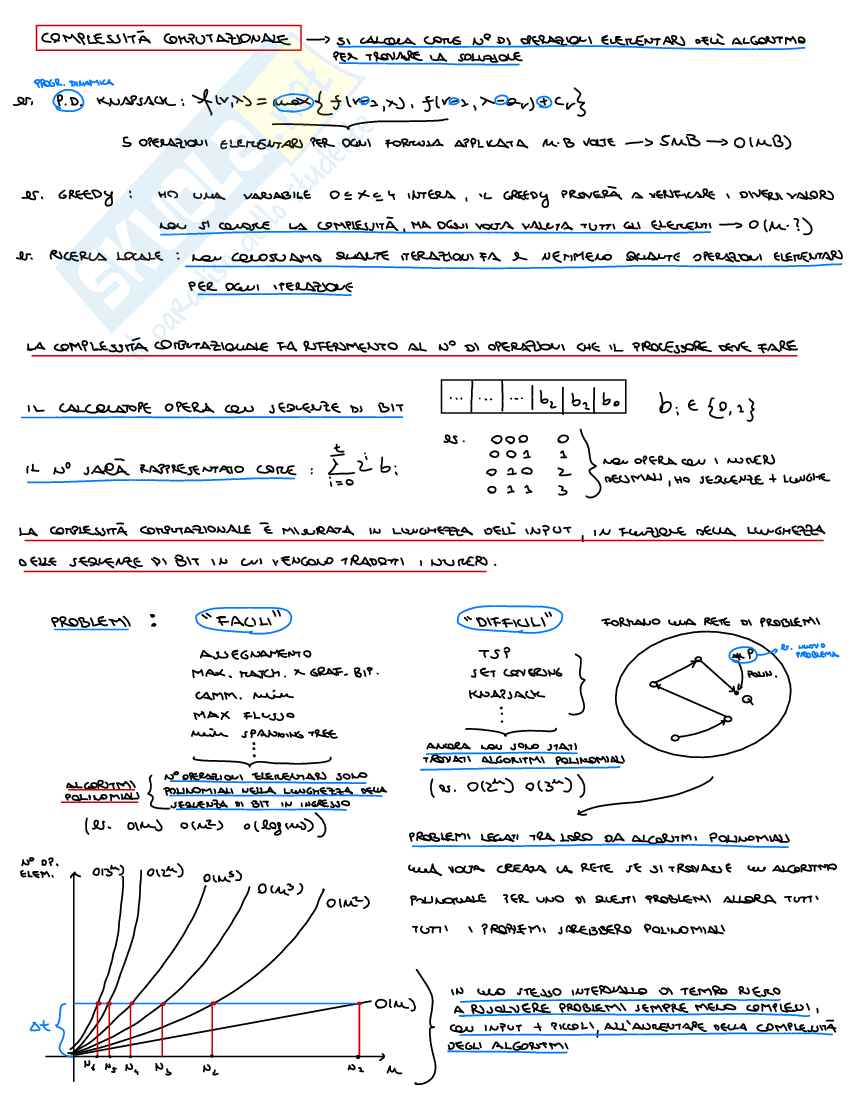 COMPLESSITÀ COMPUTAZIONALE → SI CALCOLA COME N° DI OPERAZIONI ELEMENTARI DELL'ALGORITMO
PER TROVARE LA SOLUZIONE
PROGR. DINAMICA
es. P.D. KNAPSACK: f(r,λ) = max{ f(r-1,λ), f(r-1, λ-ar) + cr}
5 OPERAZIONI ELEMENTARI PER OGNI FORMULA APPLICATA M·B VOLTE → 5MB → O(MB)
es. GREEDY : HO UNA VARIABILE 0≤X≤4 INTERA, IL GREEDY PROVERÀ A VERIFICARE I DIVERSI VALORI
NON SI CONOSCE LA COMPLESSITÀ, MA OGNI VOLTA VALUTA TUTTI GLI ELEMENTI → O(M·?)
es. RICERCA LOCALE : NON CONOSCIAMO QUANTE ITERAZIONI FA E NEMMENO QUANTE OPERAZIONI ELEMENTARI
PER OGNI ITERAZIONE
LA COMPLESSITÀ COMPUTAZIONALE FA RIFERIMENTO AL N° DI OPERAZIONI CHE IL PROCESSORE DEVE FARE
IL CALCOLATORE OPERA CON SEQUENZE DI BIT
... ... ... b2 b1 b0 bi ∈ {0,1}
IL N° SARÀ RAPPRESENTATO COME : t Σ i=0 2^i bi
es. 000 0
001 1
010 2
011 3
NON OPERA CON I NUMERI
DECIMALI, HO SEQUENZE + LUNGHE
LA COMPLESSITÀ COMPUTAZIONALE È MISURATA IN LUNGHEZZA DELL'INPUT, IN FUNZIONE DELLA LUNGHEZZA
DELLE SEQUENZE DI BIT IN CUI VENGONO TRADOTTI I NUMERI.
PROBLEMI :
"FACILI"
ASSEGNAMENTO
MAX. MATCH. X GRAF. BIP.
CAMM. MIN
MAX FLUSSO
MIN SPANNING TREE
⋮
ALGORITMI
POLINOMIALI
N° OPERAZIONI ELEMENTARI SONO
POLINOMIALI NELLA LUNGHEZZA DELLA
SEQUENZA DI BIT IN INGRESSO
(es. O(M) O(M²) O(log(M)))
"DIFFICILI"
TSP
SET COVERING
KNAPSACK
⋮
ANCORA NON SONO STATI
TROVATI ALGORITMI POLINOMIALI
(es. O(2^M) O(3^M))
FORMANO UNA RETE DI PROBLEMI
*P
es. NUOVO
PROBLEMA
POLIN.
Q
PROBLEMI LEGATI TRA LORO DA ALGORITMI POLINOMIALI
UNA VOLTA CREATA LA RETE SE SI TROVASSE UN ALGORITMO
POLINOMIALE PER UNO DI QUESTI PROBLEMI ALLORA TUTTI
TUTTI I PROBLEMI SAREBBERO POLINOMIALI
N° OP.
ELEM.
O(3^M) O(2^M) O(M⁵) O(M³) O(M²)
O(M)
Δt
N6 N5 N4 N3 N2 N1 M
IN UNO STESSO INTERVALLO DI TEMPO RIESCO
A RISOLVERE PROBLEMI SEMPRE MENO COMPLESSI,
CON INPUT + PICCOLI, ALL'AUMENTARE DELLA COMPLESSITÀ
DEGLI ALGORITMI
SKUOLA.net
il paradiso dello studente